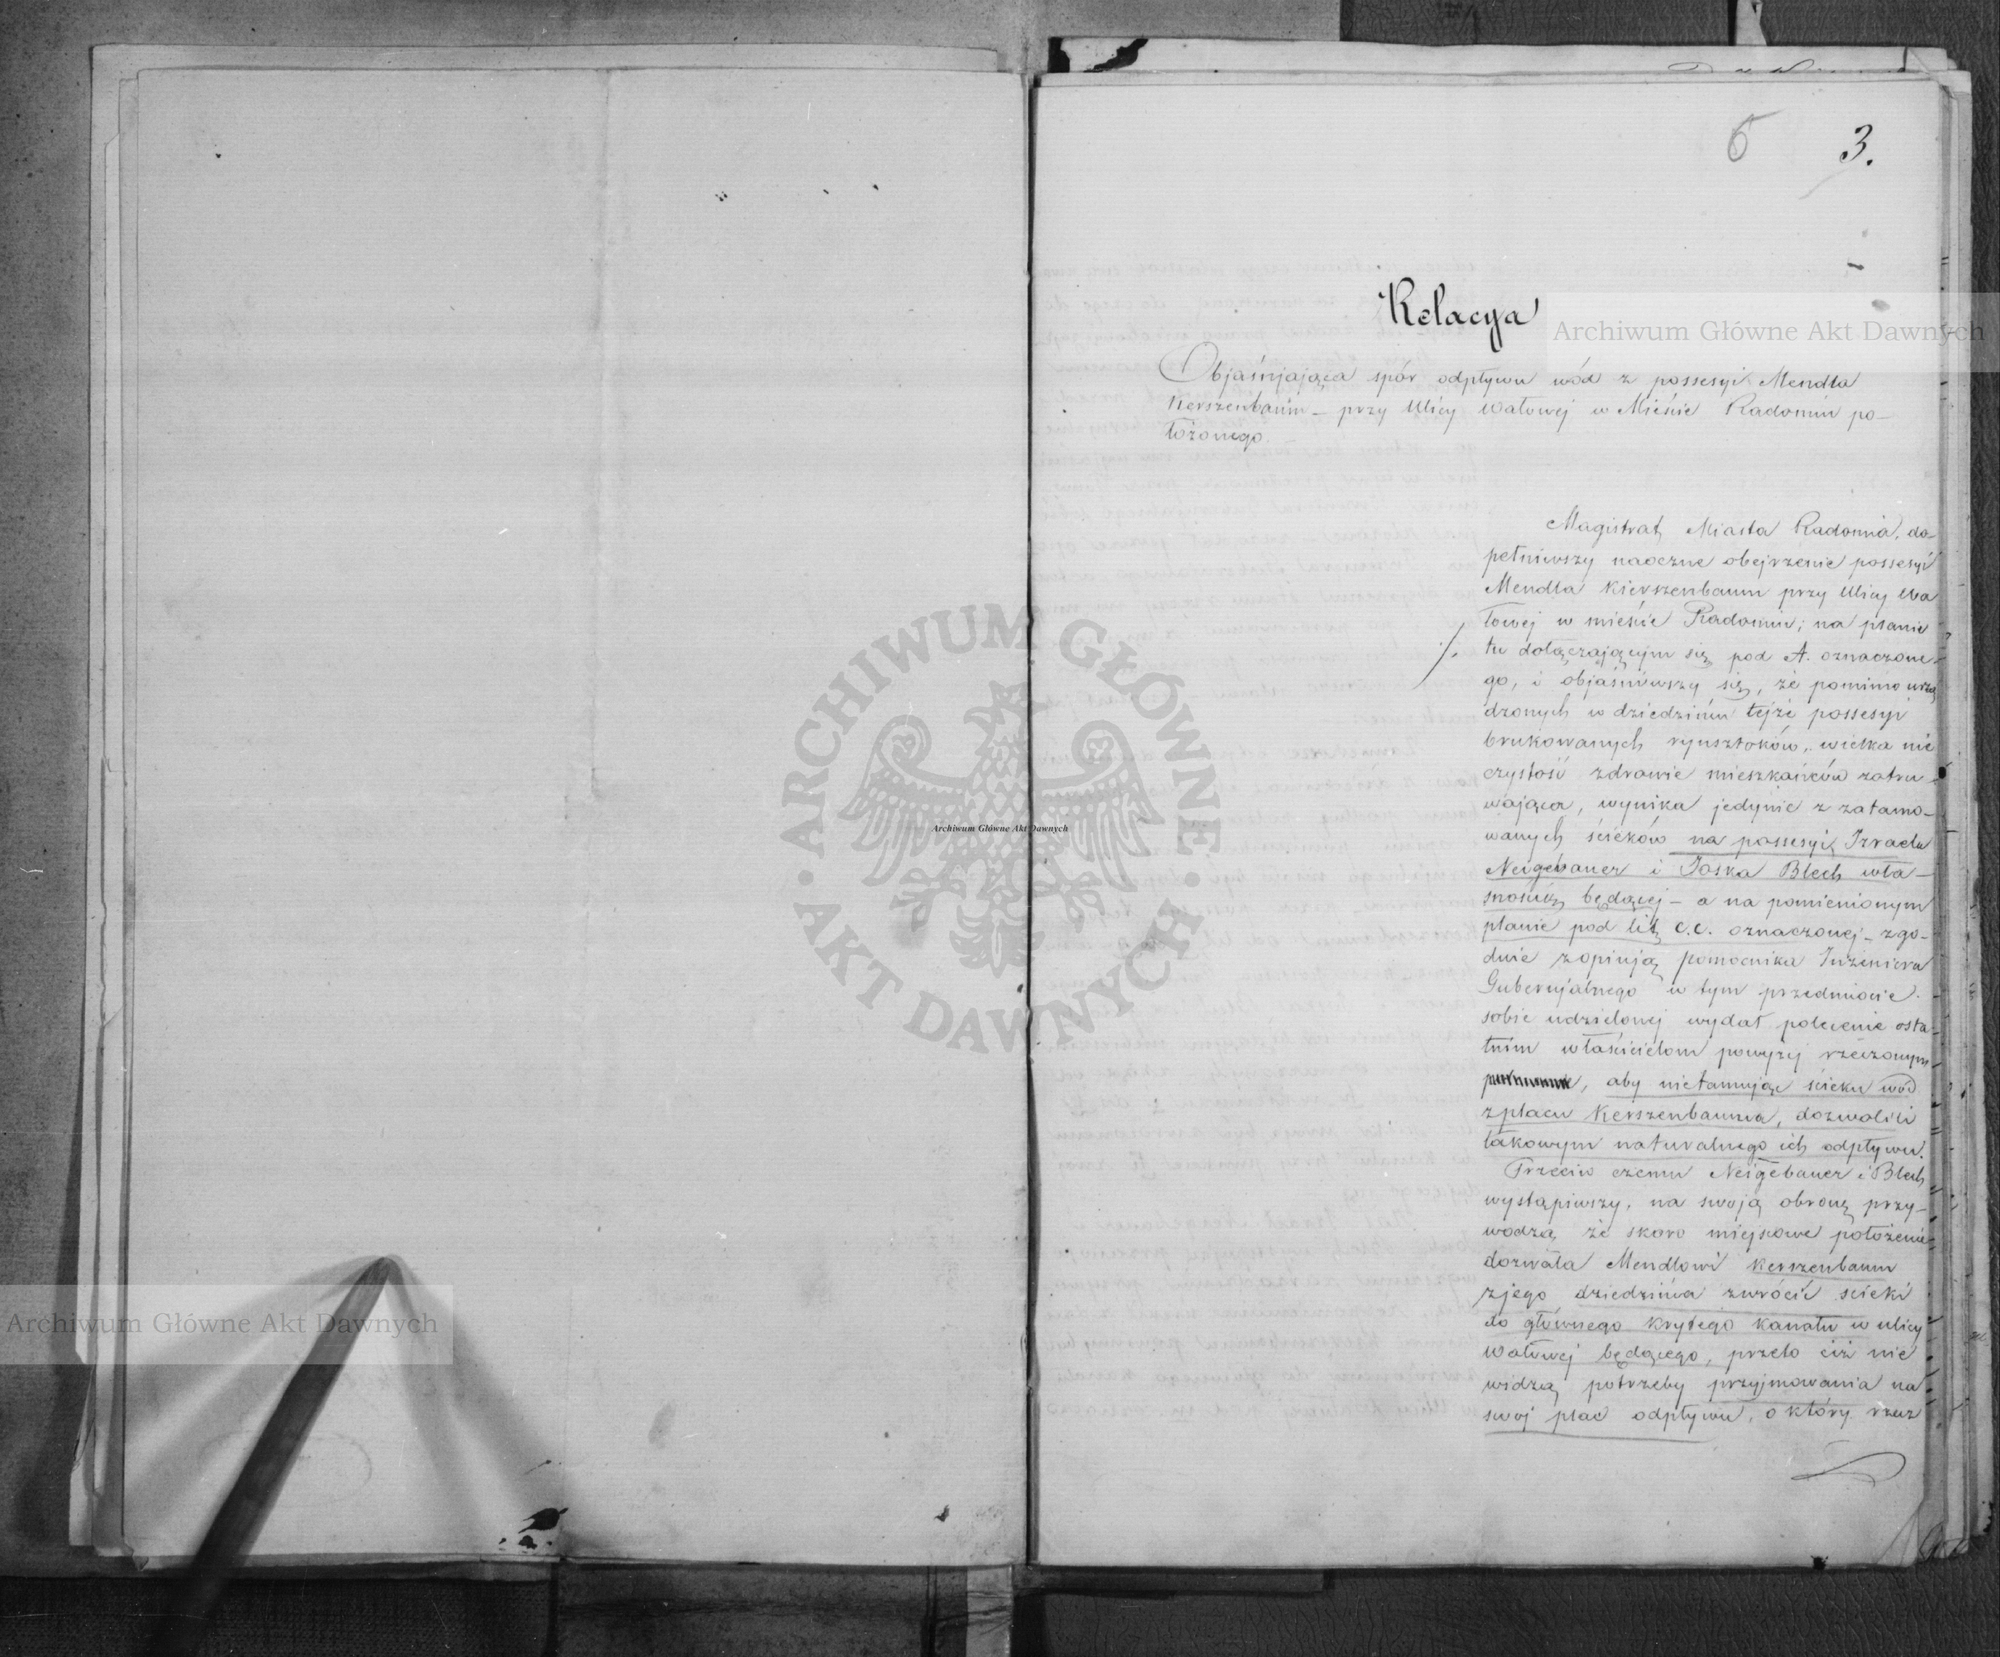 6 3.
Relacya
Objaśniająca spór odpływu wód z possesyi Mendla
Kerszenbaum – przy Ulicy Wałowej w Mieście Radomiu po-
łożonego.
Magistrat Miasta Radomia, do-
pełniwszy naoczne obejrzenie possesyi
Mendla Kierszenbaum przy Ulicy Wa
łowej w mieście Radomiu; na planie
tu dołączającym się pod A. oznaczone-
go, i objaśniwszy się, że pomimo urzą
dzonych w dziedzińcu tejże possesyi
brukowanych rynsztoków, wielka nie
czystość zdrowie mieszkańców zatru-
wająca, wynika jedynie z zatamo-
wanych ścieków na possesyi Izraela
Neigebauer i Joska Blech wła-
snością będącej – a na pomienionym
planie pod lit. c.c. oznaczonej – zgo-
dnie z opinją pomocnika Inżeniera
Gubernjalnego w tym przedmiocie
sobie udzielonej wydał polecenie osta-
tnim właścicielom powyżej rzeczonym
, aby nietamując ścieku wód
z placu Kerszenbauma, dozwolili
takowym naturalnego ich odpływu.
Przeciw czemu Neigebauer i Blech
wystąpiwszy, na swoją obronę przy-
wodzą że skoro miejscowe położenie
dozwala Mendlowi Kerszenbaum
z jego dziedzińca zwrócić ścieki
do głównego krytego kanału w ulicy
Wałowej będącego, przeto ciż nie
widzą potrzeby przyjmowania na
swój plac odpływu, o który rzecz
Archiwum Główne Akt Dawnych
Archiwum Główne Akt Dawnych
Archiwum Główne Akt Dawnych
ARCHIWUM GŁÓWNE · AKT DAWNYCH ·